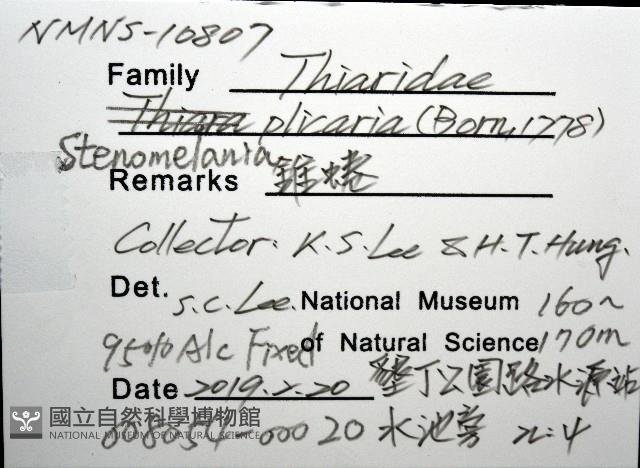 NMNS-10807
Family Thiaridae
Thiara plicaria (Born, 1778)
Stenomelania
Remarks 錐蜷
Collector: K.S.Lee & H.T.Hung.
Det. S.C.Lee. National Museum 160~
95% Alc Fixed of Natural Science 170m
Date 2019.2.20 墾丁公園路水源站
國立自然科學博物館
NATIONAL MUSEUM OF NATURAL SCIENCE
20 水池旁 n=4